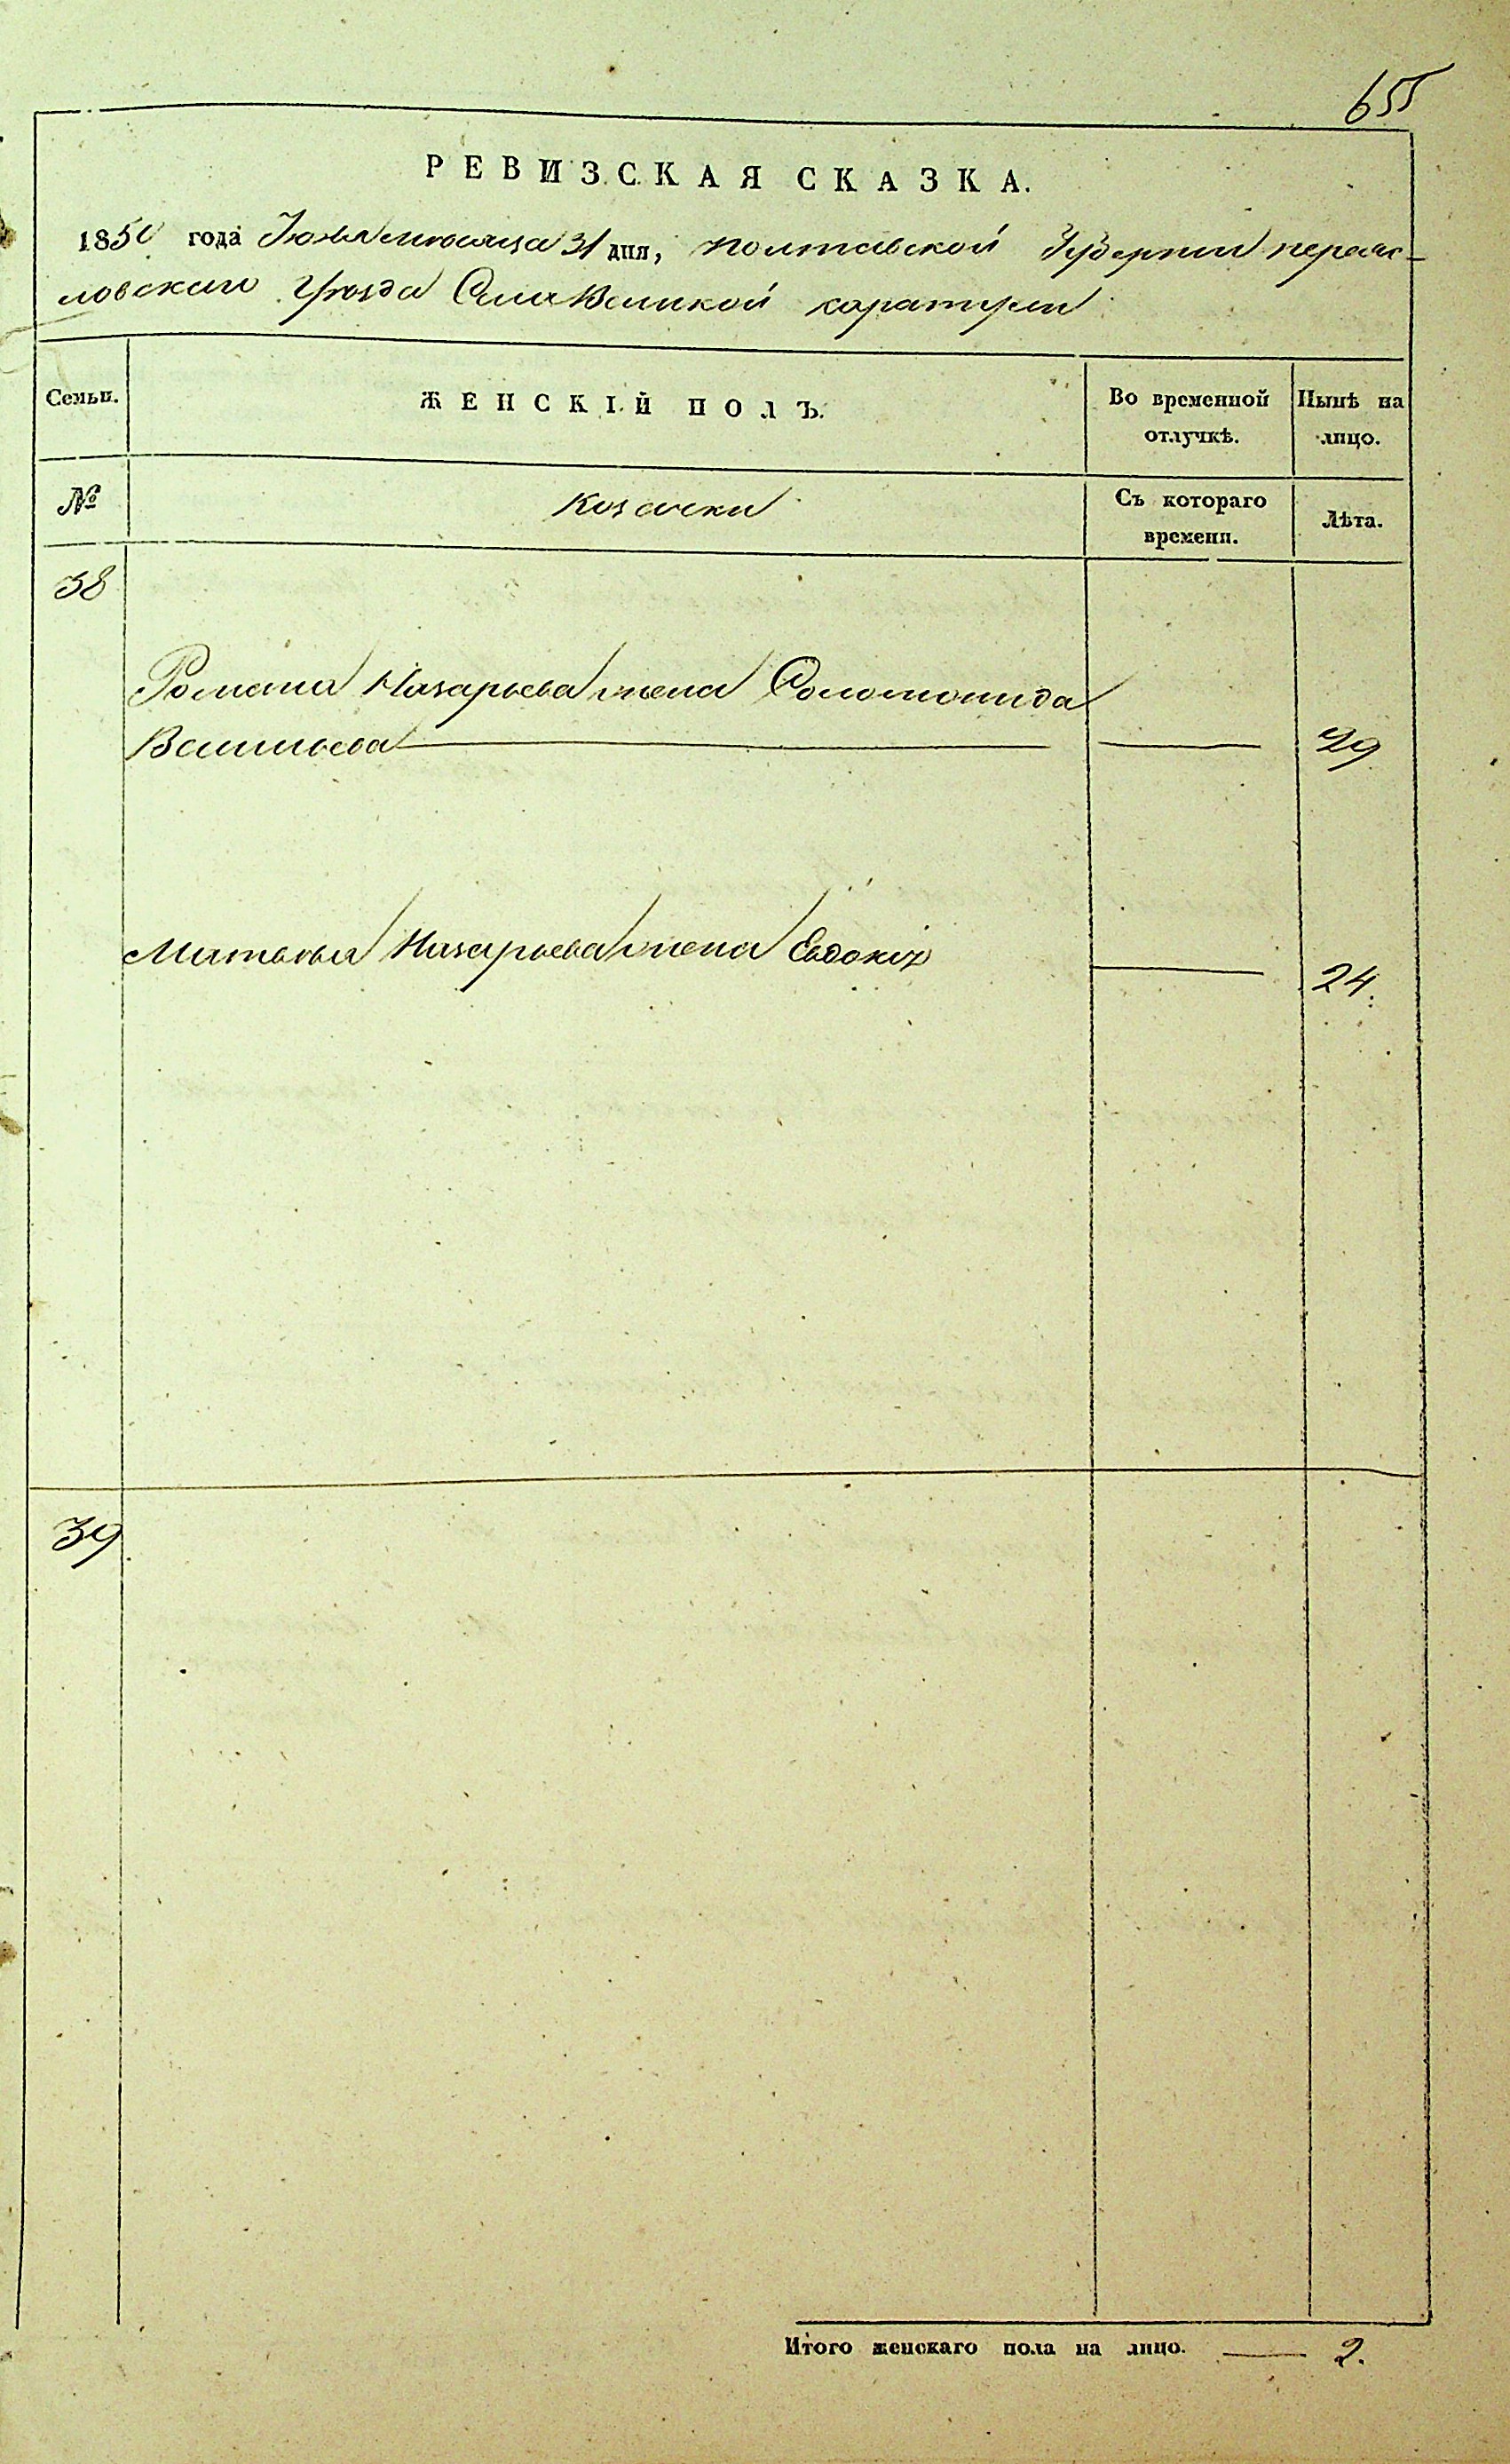 655
РЕВИЗСКАЯ СКАЗКА.
1850 года Июля месяца 31 дня, Полтавской Губернии переяс-
ловскаго Уѣзда Села Великой каратули
Семьи. ЖЕНСКІЙ ПОЛЪ. Во временной отлучкѣ. Нынѣ на лицо.
№ Козачки Съ котораго времени. Лѣта.
38
Романа Назарьева жена Соломонида
Васильева 29
Матвѣя Назарьева жена Евдокія 24.
39
Итого женскаго пола на лицо. 2.